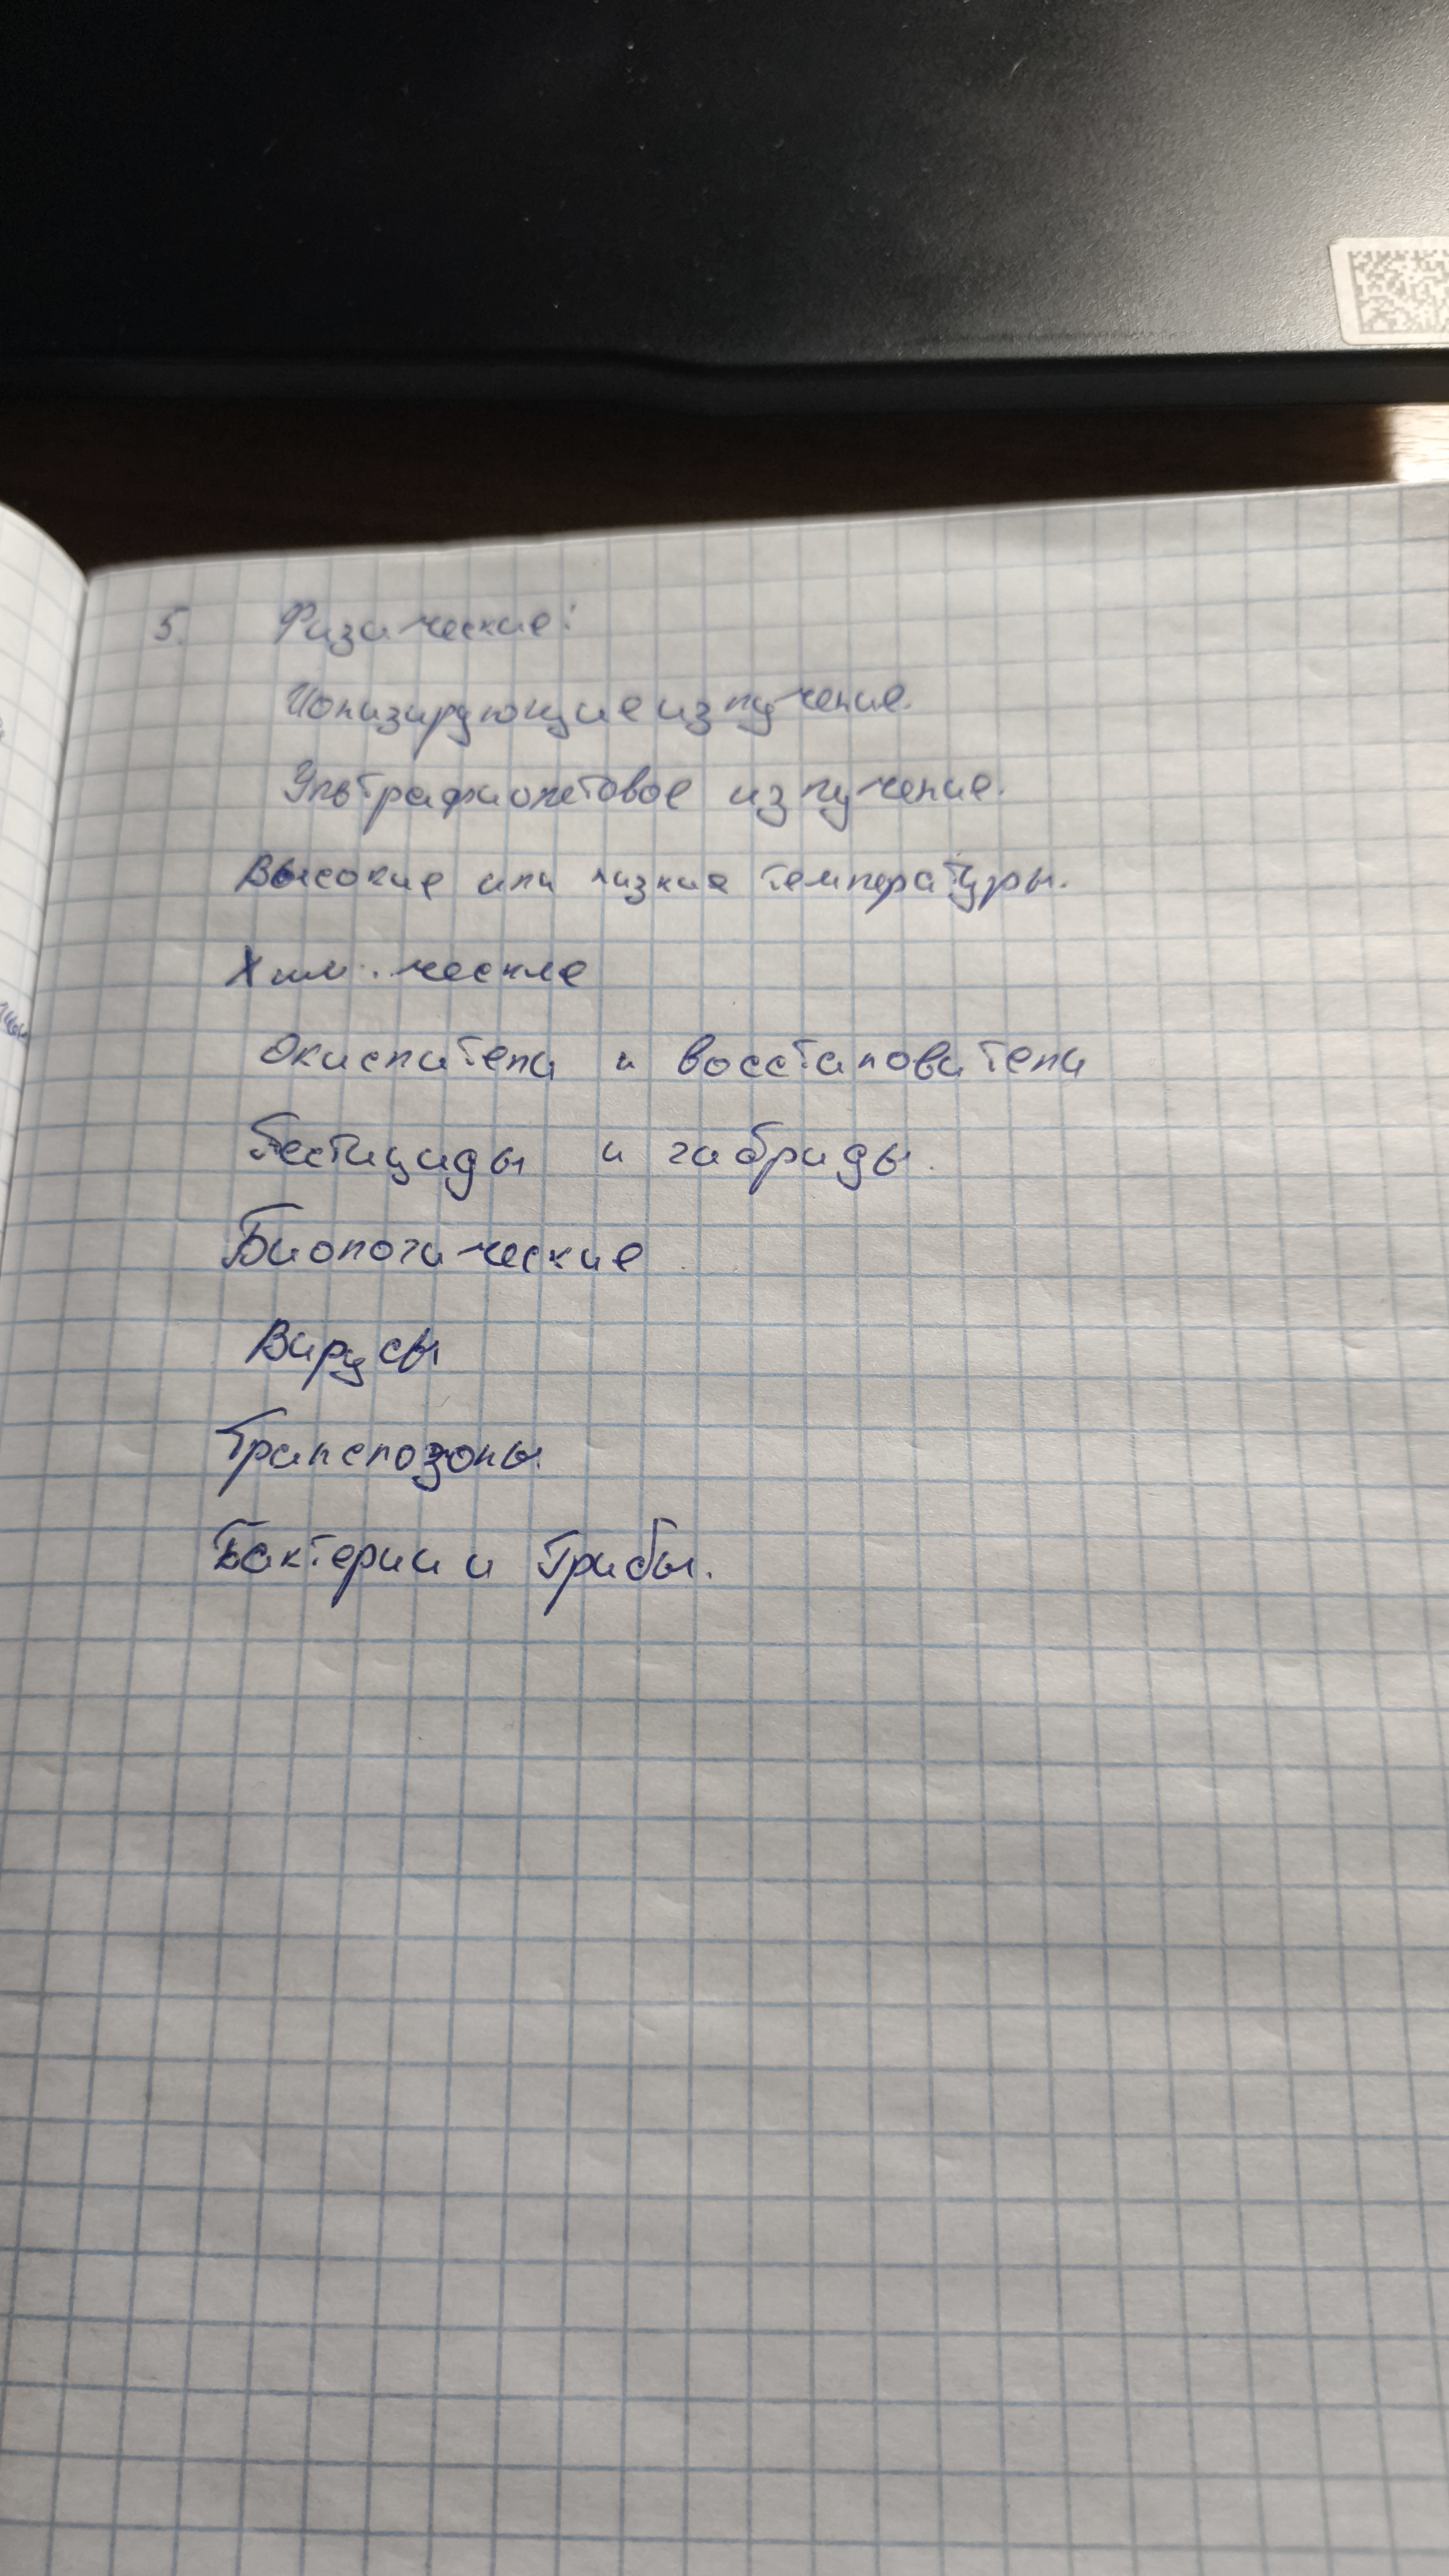 5. Физические:
Ионизирующие излучение.
Ультрафиолетовое излучение.
Высокие или низкие температуры.
Химические
Окислители и восстановители
Пестициды и гибриды.
Биологические
Вирусы
Транспозоны.
Бактерии и Грибы.